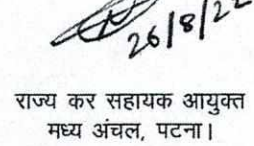 26/8/22
राज्य कर सहायक आयुक्त
मध्य अंचल, पटना।